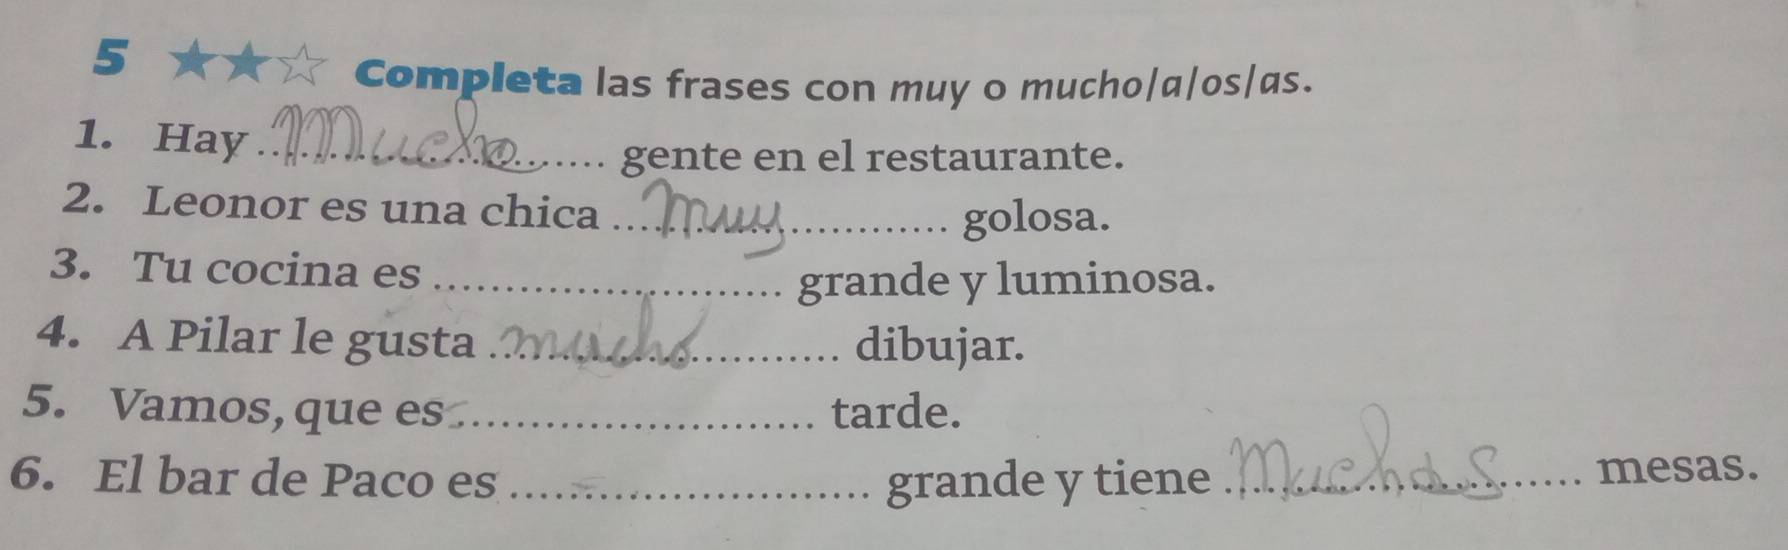 5 ★★☆ Completa las frases con muy o mucho/a/os/as.
1. Hay ...Mucho...... gente en el restaurante.
2. Leonor es una chica ...muy.......... golosa.
3. Tu cocina es ........................ grande y luminosa.
4. A Pilar le gusta ..mucho.......... dibujar.
5. Vamos, que es ........................ tarde.
6. El bar de Paco es ........................ grande y tiene ..Muchas...... mesas.